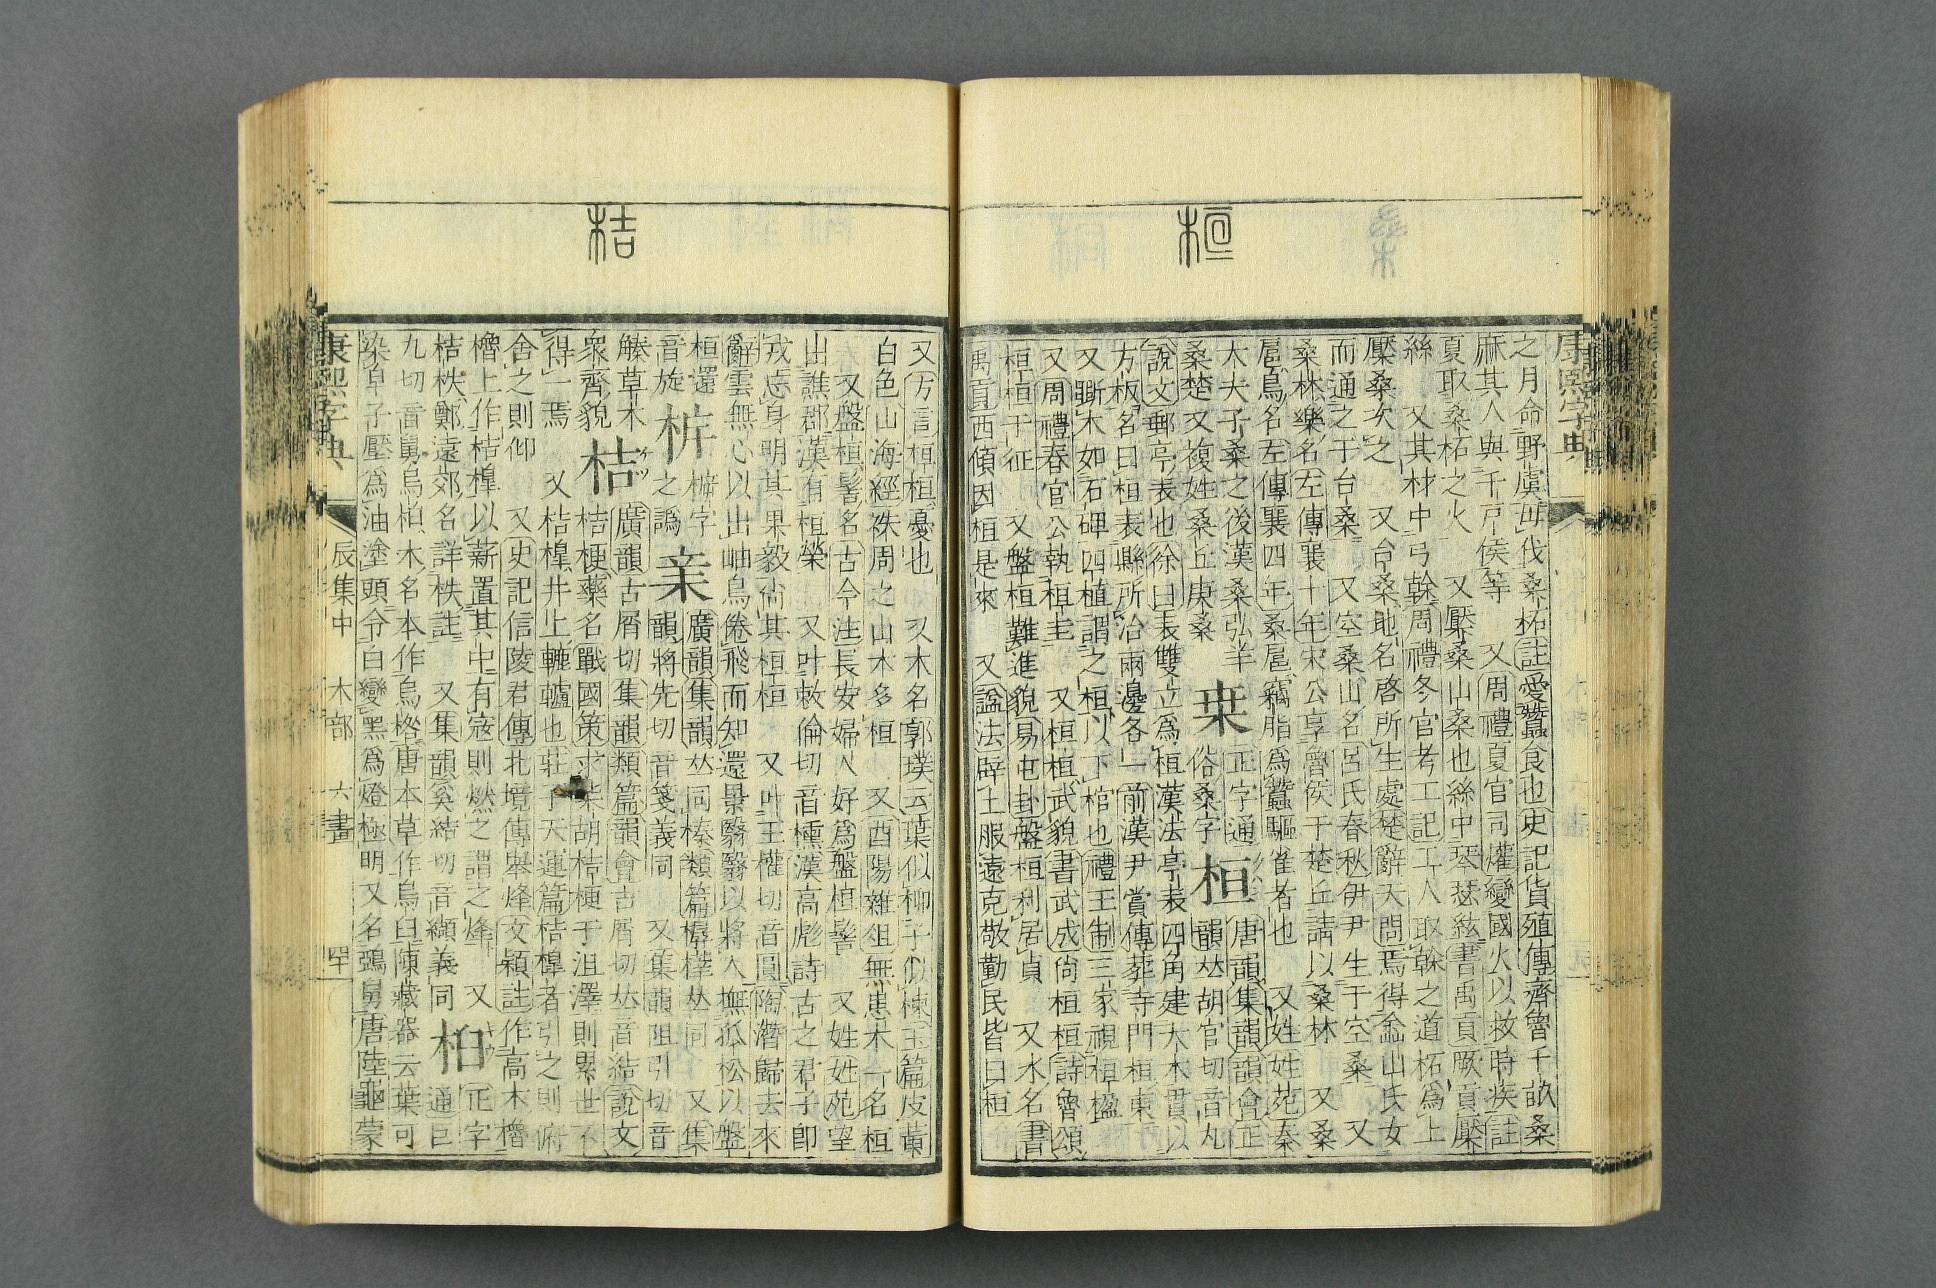 桑
桓
康熙字典
之月命野虞毋伐桑柘註愛蠶食也史記貨殖傳齊魯千畝桑
麻其人與千戸侯等　又周禮夏官司爟變國火以救時疾註
夏取桑柘之火　又檿桑山桑也絲中琴瑟絃書禹貢厥貢檿
絲　又其材中弓榦周禮冬官考工記工人取榦之道柘爲上
檿桑次之　又台桑地名啓所生處楚辭天問焉得嵞山氏女
而通之于台桑　又空桑山名呂氏春秋伊尹生于空桑　又
桑林樂名左傳襄十年宋公享魯侯于楚丘請以桑林　又桑
扈鳥名左傳襄四年桑扈竊脂爲蠶驅雀者也　又姓姓苑秦
大夫子桑之後漢桑弘羊
桑楚又複姓桑丘庚桑
桒
正字通
俗桑字
桓
唐韻集韻韻會正
韻𠀤胡官切音丸
說文郵亭表也徐曰表雙立爲桓漢法亭表四角建大木貫以
方板名曰桓表縣所治兩邊各一前漢尹賞傳葬寺門桓東
又斲木如石碑四植謂之桓以下棺也禮王制三家視桓楹
又周禮春官公執桓圭　又桓桓武貌書武成尚桓桓詩魯頌
桓桓于征　又盤桓難進貌易屯卦盤桓利居貞　又水名書
禹貢西傾因桓是來　又諡法辟土服遠克敬勤民皆曰桓
桔
又方言桓桓憂也　又木名郭璞云葉似柳子似楝玉篇皮黃
白色山海經袾周之山木多桓　又酉陽雜俎無患木一名桓
又盤桓髻名古今注長安婦人好爲盤桓髻　又姓姓苑望
出譙郡漢有桓榮　又叶敕倫切音櫄漢高彪詩古之君子卽
戎忘身明其果毅尚其桓桓　又叶王權切音圓陶潛歸去來
辭雲無心以出岫鳥倦飛而知還景翳翳以將入撫孤松以盤
桓還
音旋
㭊
㯕字
之譌
亲
廣韻集韻𠀤同榛類篇樼榟𠀤同　又集
韻將先切音箋義同　又集韻阻引切音
𦠁草木
衆齊貌
桔
廣韻古屑切集韻類篇韻會吉屑切𠀤音結說文
桔梗藥名戰國策求柴胡桔梗于沮澤則累世不
得一焉　又桔橰井上轆轤也莊子天運篇桔橰者引之則俯
舍之則仰　又史記信陵君傳北境傳舉烽文穎註作高木櫓
櫓上作桔橰以薪置其中有寇則燃之謂之烽　又
桔柣鄭遠郊名詳柣註　又集韻奚結切音纈義同
桕
正字
通巨
九切音舅烏桕木名本作烏桕唐本草作烏臼陳藏器云葉可
染皁子壓爲油塗頭令白變黑爲燈極明又名鵶舅唐陸龜蒙
康熙字典　辰集中　木部　六畫　𦉭